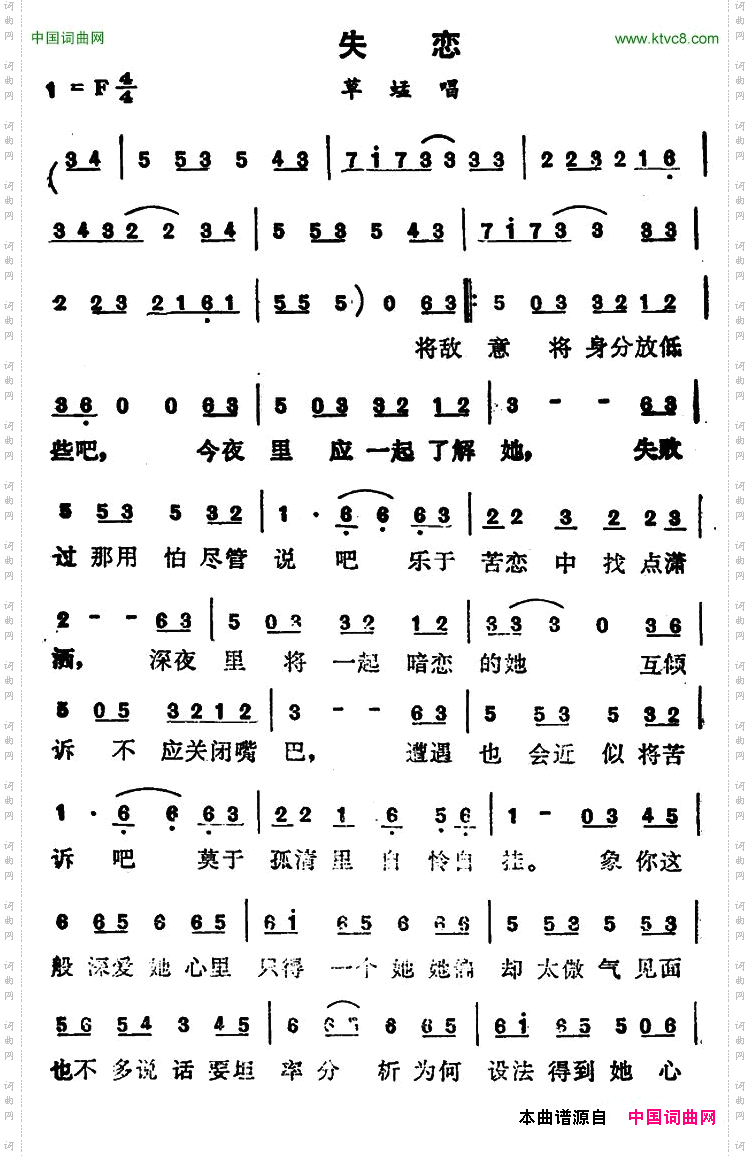 中国词曲网 失 恋 www.ktvc8.com
1 = F 4/4 草 蜢 唱
( 3 4 | 5 5 5 3 5 4 3 | 7 i 7 3 3 3 3 | 2 2 3 2 1 6 |
3 4 3 2 2 3 4 | 5 5 5 3 5 4 3 | 7 i 7 3 3 3 3 |
2 2 3 2 1 6 1 | 5 5 5 ) 0 6 3 |: 5 0 3 3 2 1 2 |
将敌 意 将 身分放低
3 6 0 0 6 3 | 5 0 3 3 2 1 2 | 3 - - 6 3 |
些吧, 今夜 里 应 一起 了解 她, 失败
5 5 3 5 3 2 | 1 · 6 6 6 3 | 2 2 3 2 2 3 |
过 那用 怕 尽管 说 吧 乐于 苦恋 中 找 点潇
2 - - 6 3 | 5 0 3 3 2 1 2 | 3 3 3 0 3 6 |
洒, 深夜 里 将 一起 暗恋 的她 互倾
5 0 5 3 2 1 2 | 3 - - 6 3 | 5 5 3 5 3 2 |
诉 不 应关闭嘴 巴, 遭遇 也 会近 似 将苦
1 · 6 6 6 3 | 2 2 1 6 5 6 | 1 - 0 3 4 5 |
诉 吧 莫于 孤清 里 自 怜自 挂。 象 你这
6 6 5 6 6 5 | 6 i 6 5 6 6 6 | 5 5 3 5 5 3 |
般 深爱 她 心里 只得 一个 她 她 却 太微 气 见面
5 6 5 4 3 4 5 | 6 6 5 6 6 5 | 6 i 6 5 5 0 6 |
也不 多说 话 要坦 率 分 析 为何 设法 得到 她 心
本曲谱源自 中国词曲网